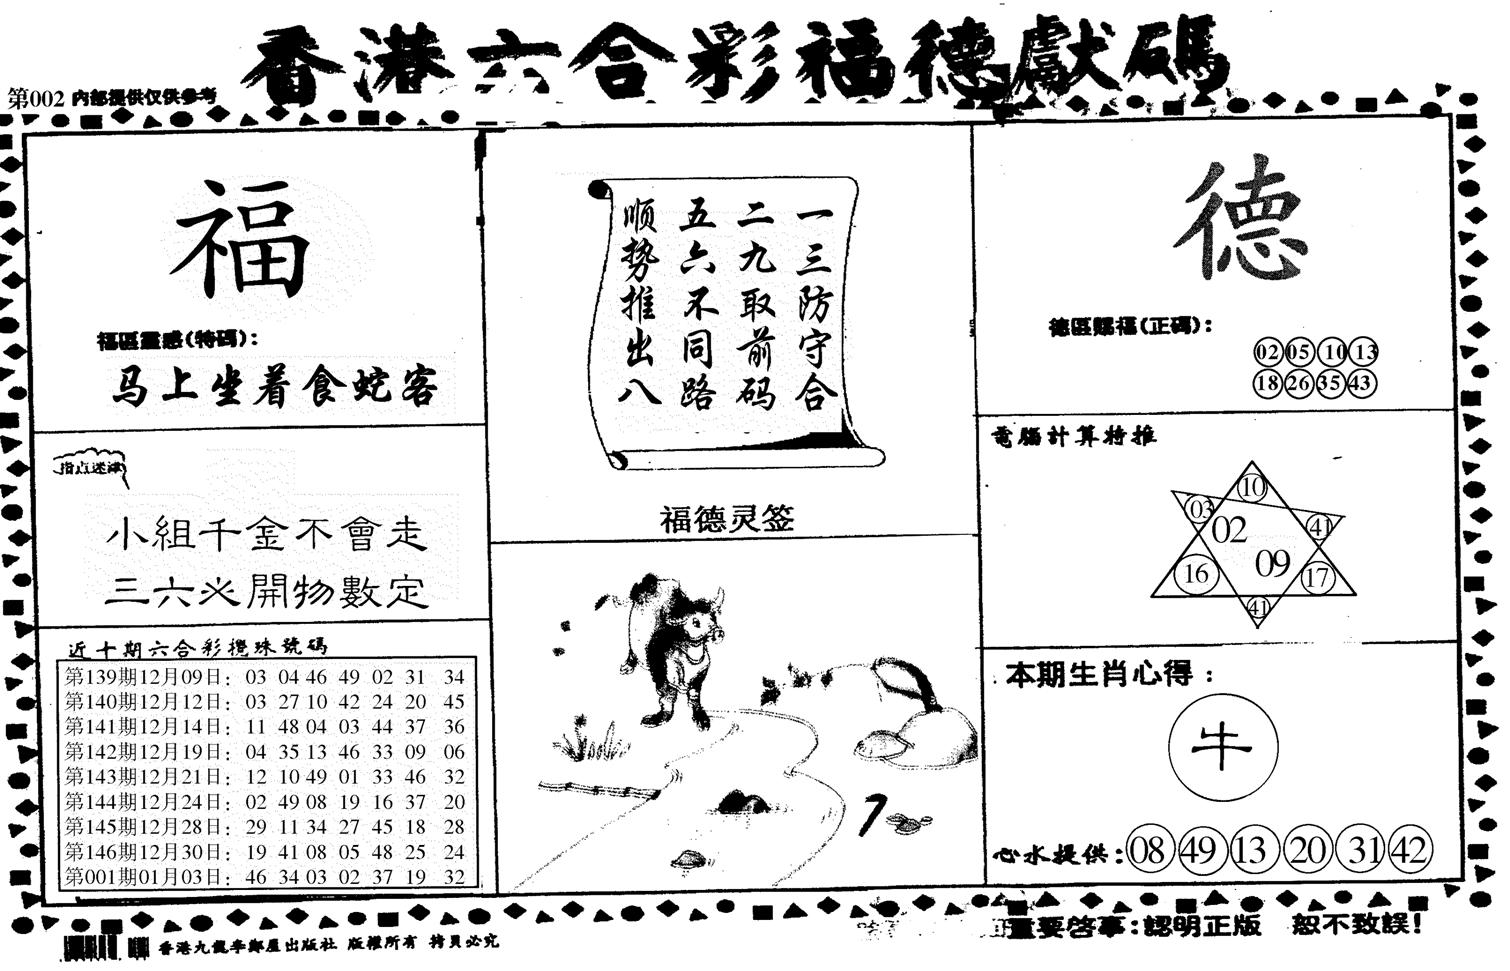 香港六合彩福德獻碼
第002 内部提供仅供参考
福
福區靈感(特碼):
马上坐着食蛇客
指点迷津
小組千金不會走
三六必開物數定
近十期六合彩攪珠號碼
第139期12月09日: 03 04 46 49 02 31 34
第140期12月12日: 03 27 10 42 24 20 45
第141期12月14日: 11 48 04 03 44 37 36
第142期12月19日: 04 35 13 46 33 09 06
第143期12月21日: 12 10 49 01 33 46 32
第144期12月24日: 02 49 08 19 16 37 20
第145期12月28日: 29 11 34 27 45 18 28
第146期12月30日: 19 41 08 05 48 25 24
第001期01月03日: 46 34 03 02 37 19 32
一三防守合
二九取前码
五六不同路
顺势推出八
福德灵签
7
德
德區賜福(正碼):
02 05 10 13
18 26 35 43
電腦計算特推
10
03
41
02
09
16
17
41
本期生肖心得:
牛
心水提供: 08 49 13 20 31 42
香港九龍李鄭屋出版社 版權所有 拷貝必究
重要啓事:認明正版 恕不致誤!